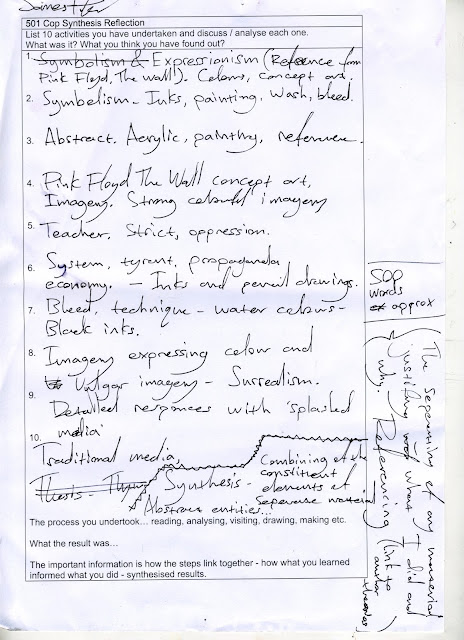 501 Cop Synthesis Reflection
List 10 activities you have undertaken and discuss / analyse each one.
What was it? What you think you have found out?
1. Symbolism & Expressionism (Reference from
Pink Floyd, The Wall). Colours, concept art.
2. Symbolism - Inks, painting, wash, bleed.
3. Abstract. Acrylic, painting, reference.
4. Pink Floyd The Wall concept art,
Imagery, Strong colourful imagery
5. Teacher, Strict, oppression.
6. System, tyrant, propaganda
economy. - Inks and pencil drawings.
7. Bleed, technique - water colours -
Black inks.
8. Imagery expressing colour and
Vulgar imagery - Surrealism.
9. Detailed responses with 'splashed
media'
10. Traditional media,
Thesis - Synthesis -
* Abstract entities...
Combining of the
constituent
elements of
Seperate material
The process you undertook... reading, analysing, visiting, drawing, making etc.
What the result was...
The important information is how the steps link together - how what you learned
informed what you did - synthesised results.
500
words
approx
The Seperating of any material
justifying what I did and
why. Referencing (link to